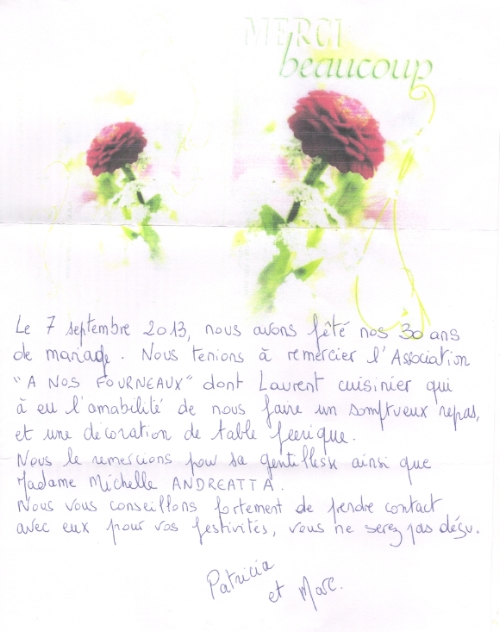 MERCI
beaucoup
Le 7 septembre 2013, nous avons fêté nos 30 ans
de mariage. Nous tenions à remercier l'Association
"A NOS FOURNEAUX" dont Laurent cuisinier qui
à eu l'amabilité de nous faire un somptueux repas,
et une décoration de table féerique.
Nous le remercions pour sa gentillesse ainsi que
Madame Michelle ANDREATTA.
Nous vous conseillons fortement de prendre contact
avec eux pour vos festivités, vous ne serez pas déçu.
Patricia
et Marc.